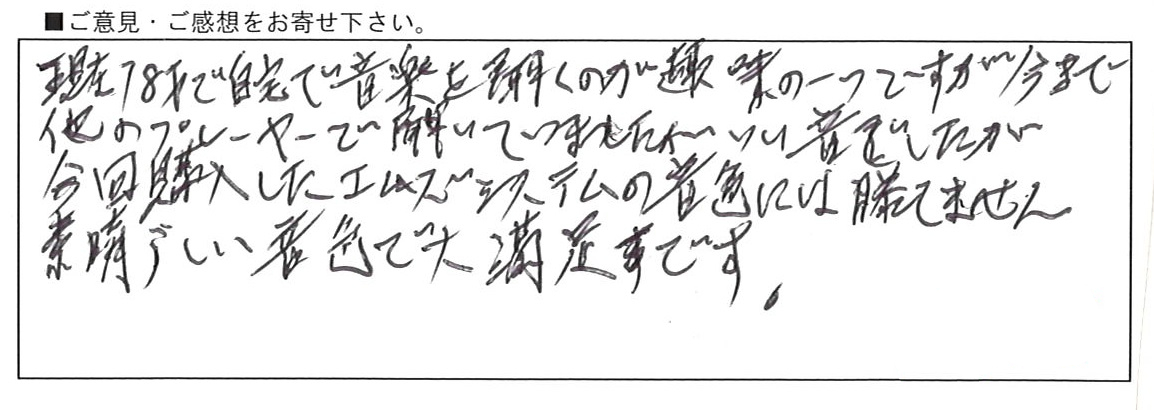 ■ご意見・ご感想をお寄せ下さい。
現在78才で自宅で音楽を聞くのが趣味の一つですが今まで
他のプレーヤーで聞いていましたがいい音でしたが
今回購入したエムズシステムの音色には勝てません
素晴らしい音色で大満足です。